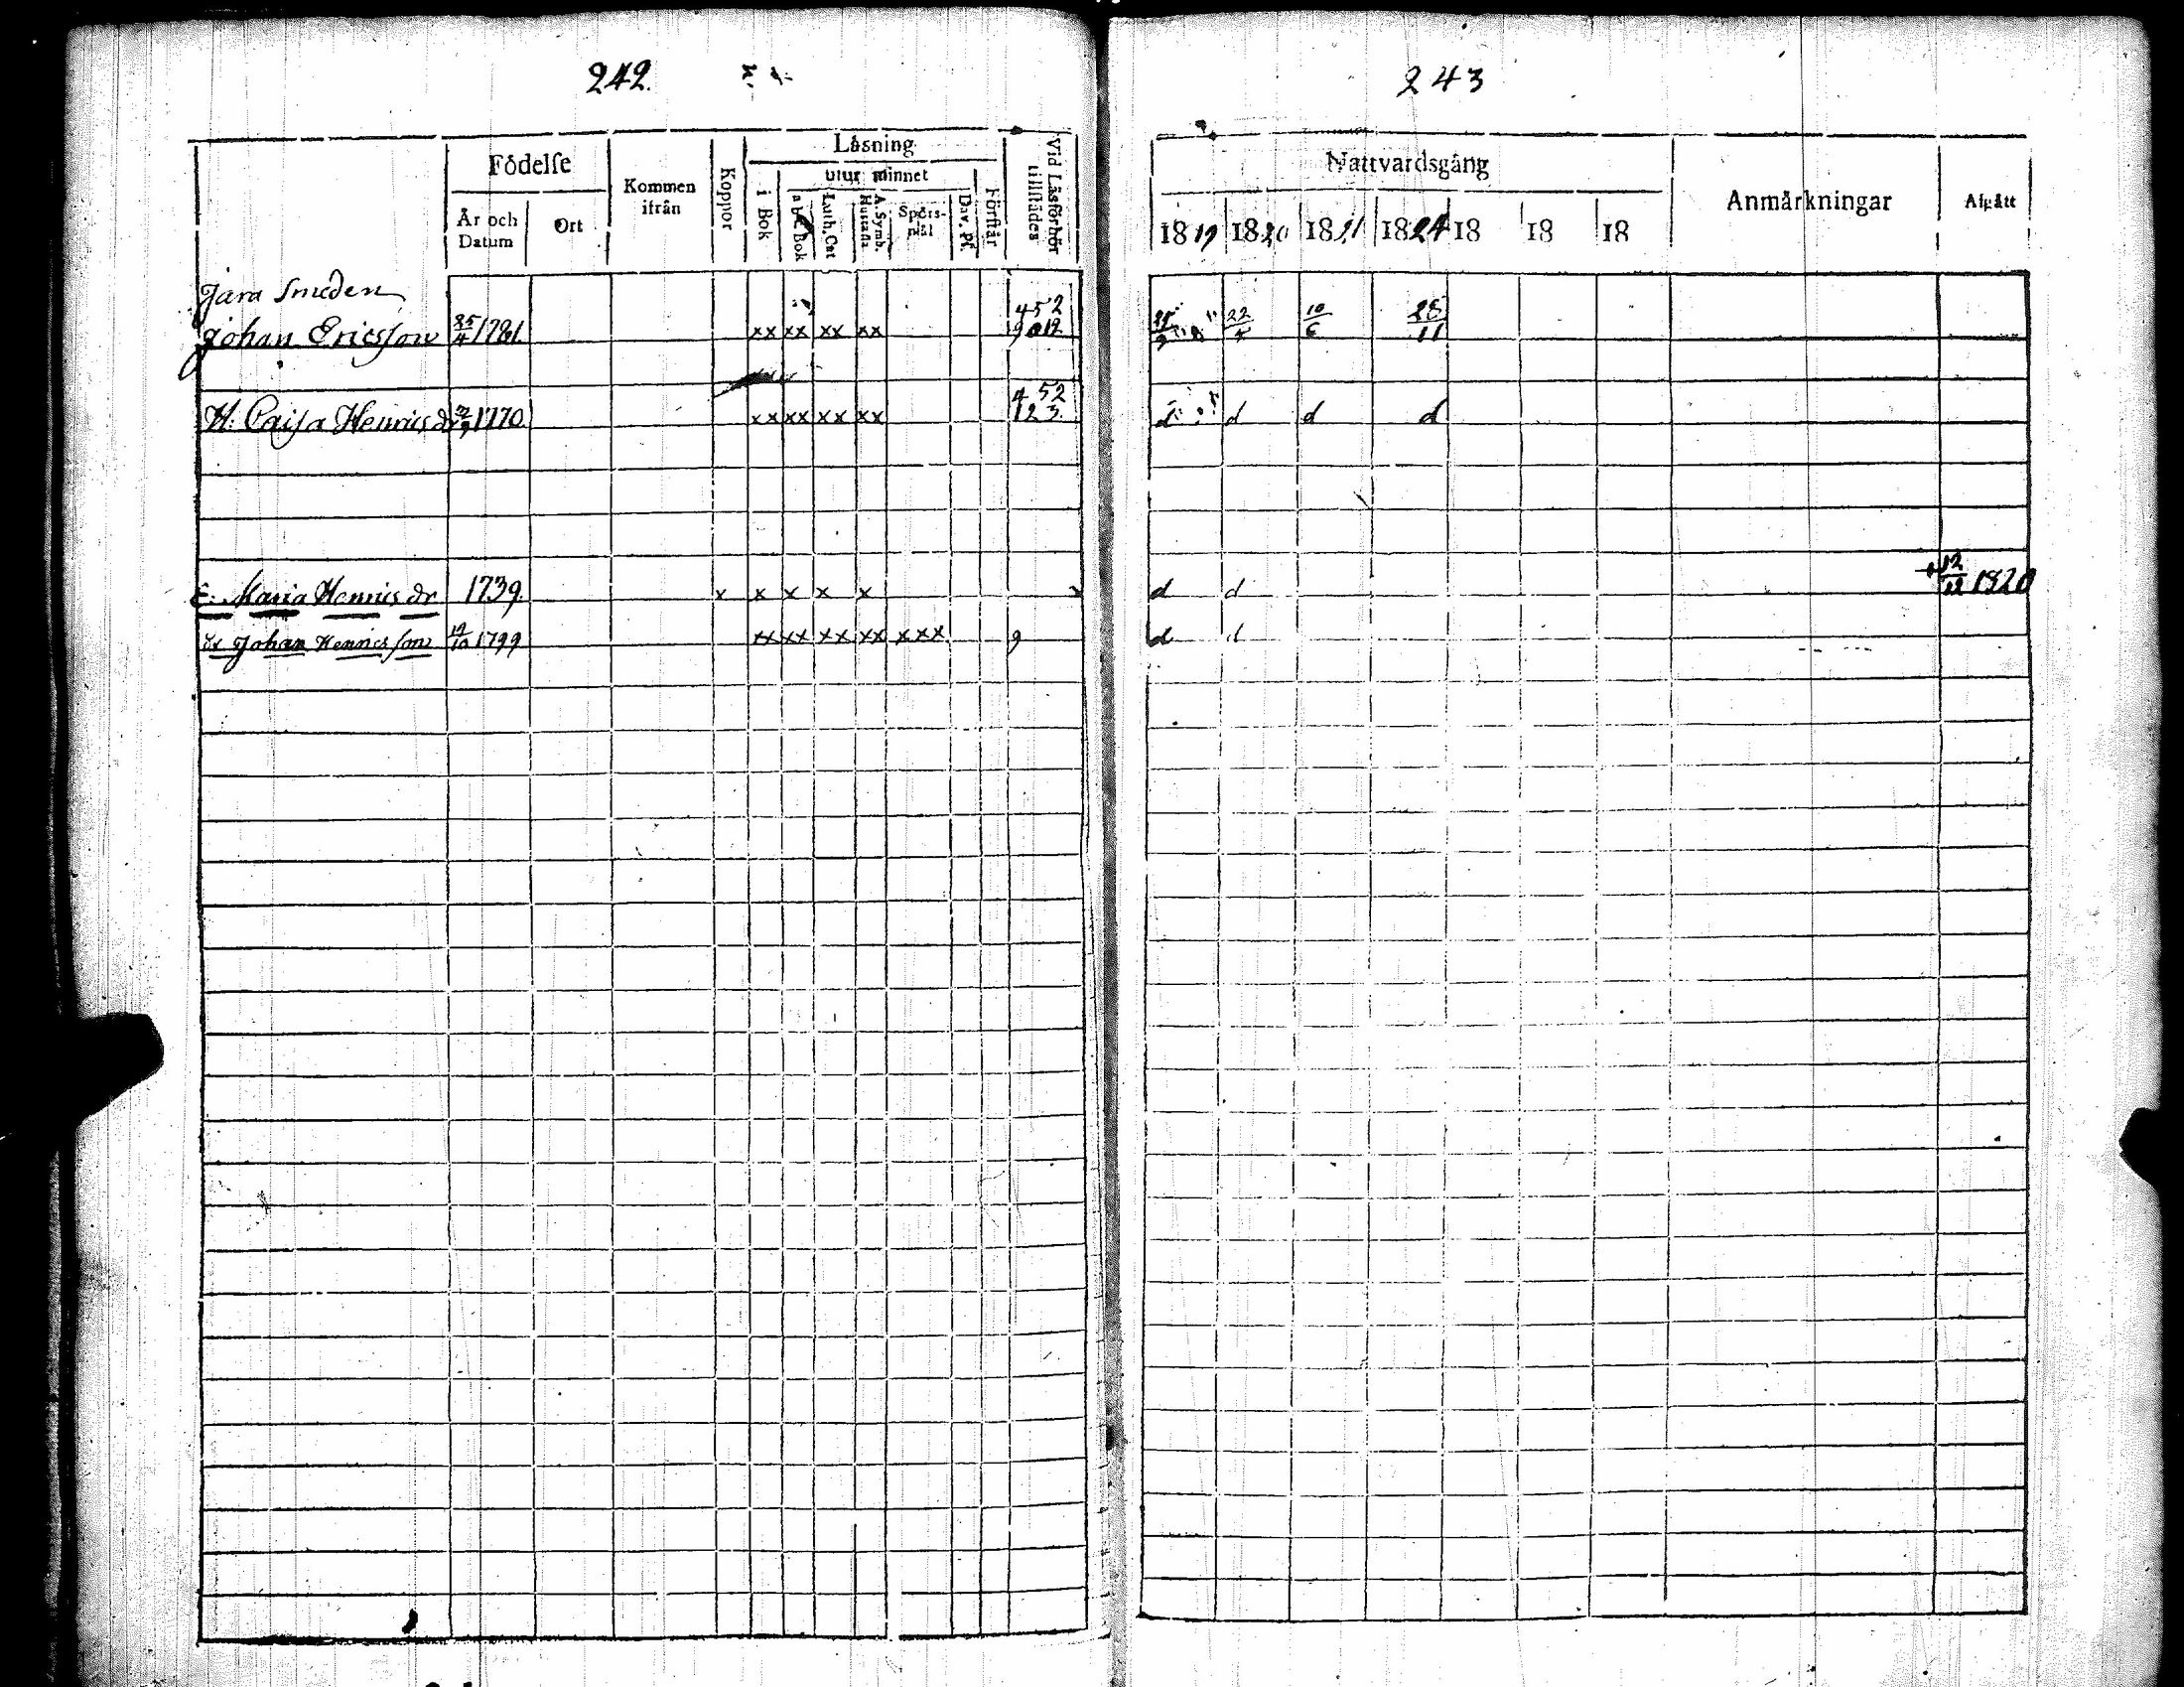 242.
Födelse
Kommen ifrån
Koppor
Läsning
Vid Läsförhör tillstädes
År och Datum
Ort
i Bok
utur minnet
Förstår
a b c Bok
Luth. Cat
A. Symb. Hustafla
Spörs-mål
Dav. Ps.
Smeden
Johan Ericsson 25/4 1761. xx xx xx xx 452 9012
H: Caisa Henricsdr 1770. xx xx xx xx 452 123.
E: Maria Henricsdr 1739. x x x x x x
dr Johan Henricsson 19/10 1799 xx xx xx xx xxx 9
243
Nattvardsgång
Anmärkningar
Afgått
1819 1820 1821 1824 18 18 18
22/5 10/6 28/11
d d d d
d d + 12/12 1820
d d